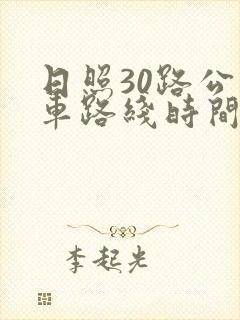 日照30路公
車路綫時間
李起光